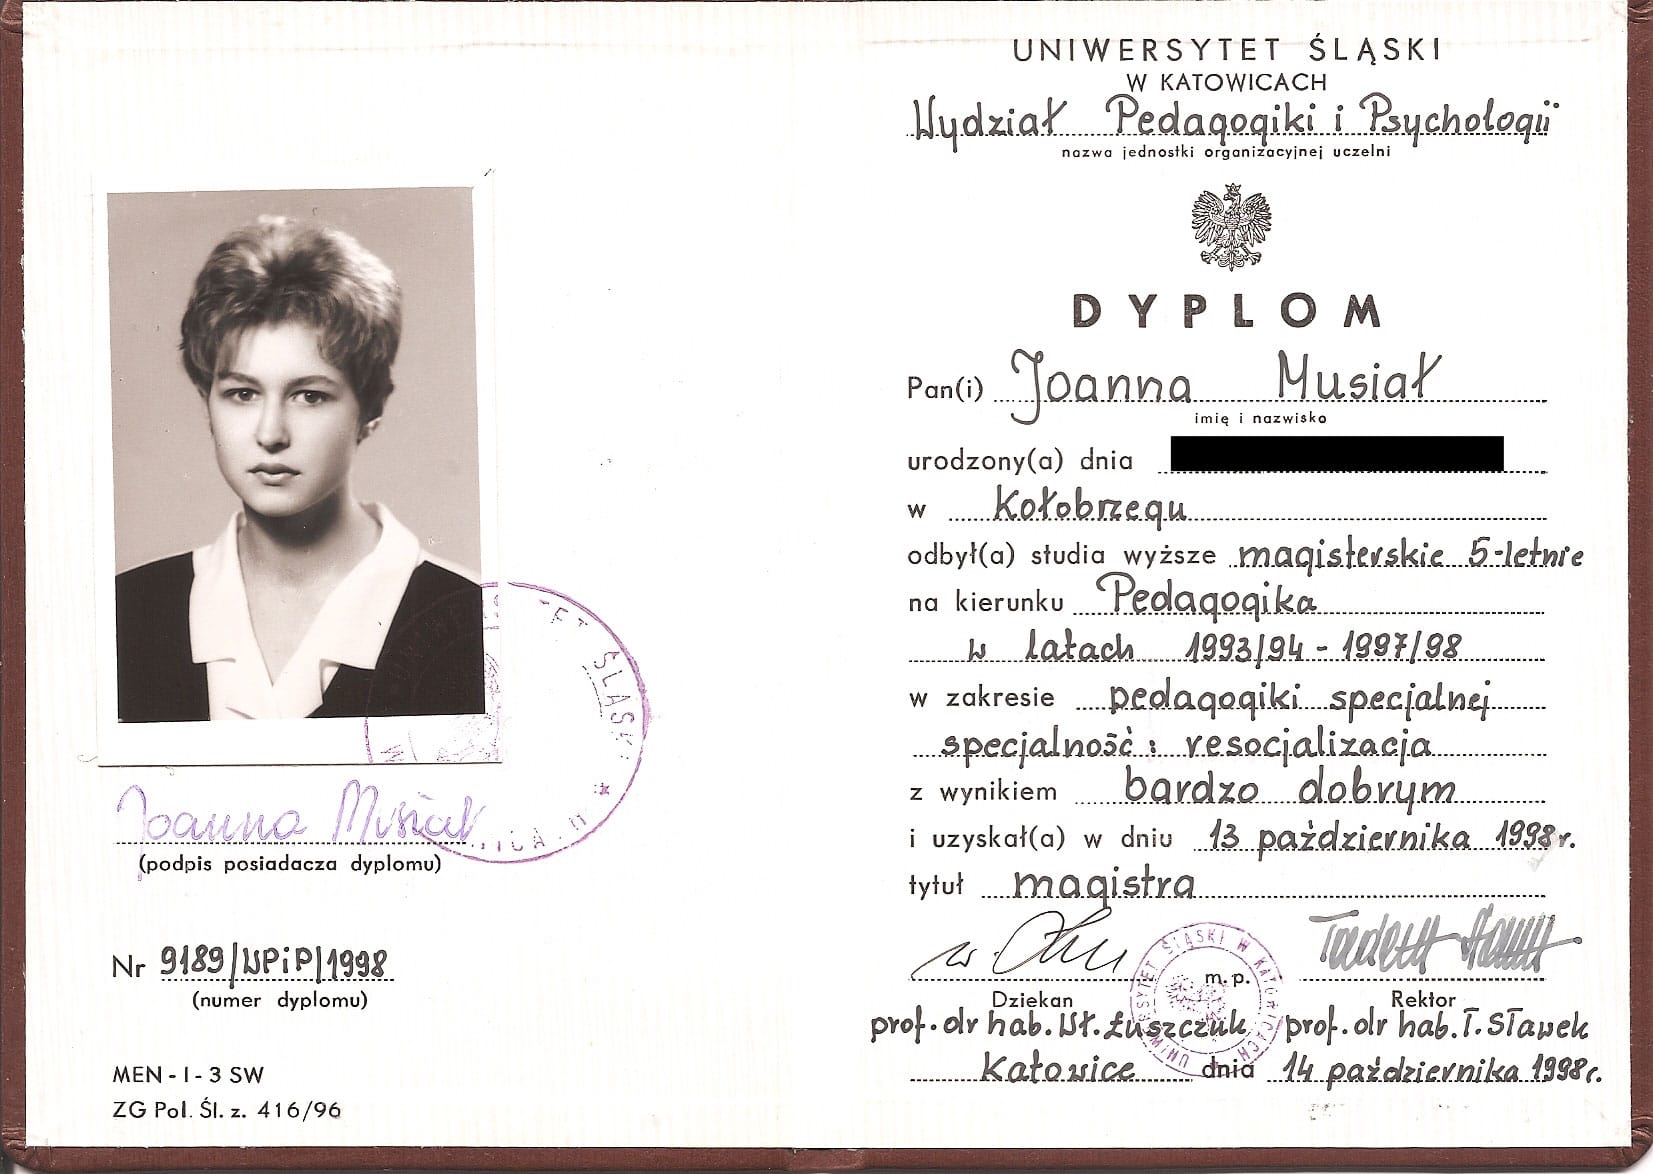 Joanna Musiał
(podpis posiadacza dyplomu)
Nr 9189/WPiP/1998
(numer dyplomu)
MEN - I - 3 SW
ZG Pol. Śl. z. 416/96
UNIWERSYTET ŚLĄSKI
W KATOWICACH
Wydział Pedagogiki i Psychologii
nazwa jednostki organizacyjnej uczelni
DYPLOM
Pan(i) Joanna Musiał
imię i nazwisko
urodzony(a) dnia
w Kołobrzegu
odbył(a) studia wyższe magisterskie 5-letnie
na kierunku Pedagogika
w latach 1993/94 - 1997/98
w zakresie pedagogiki specjalnej
specjalność: resocjalizacja
z wynikiem bardzo dobrym
i uzyskał(a) w dniu 13 października 1998r.
tytuł magistra
UNIWERSYTET ŚLĄSKI W KATOWICACH
m.p.
Dziekan Rektor
prof. dr hab. Wł. Łuszczuk prof. dr hab. T. Sławek
Katowice dnia 14 października 1998r.